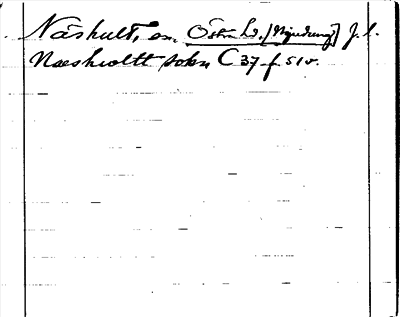 Näshult, sn. Östra hd. [Njudung] J. l.
Naeshioltt sokn C 37 f. 51v.